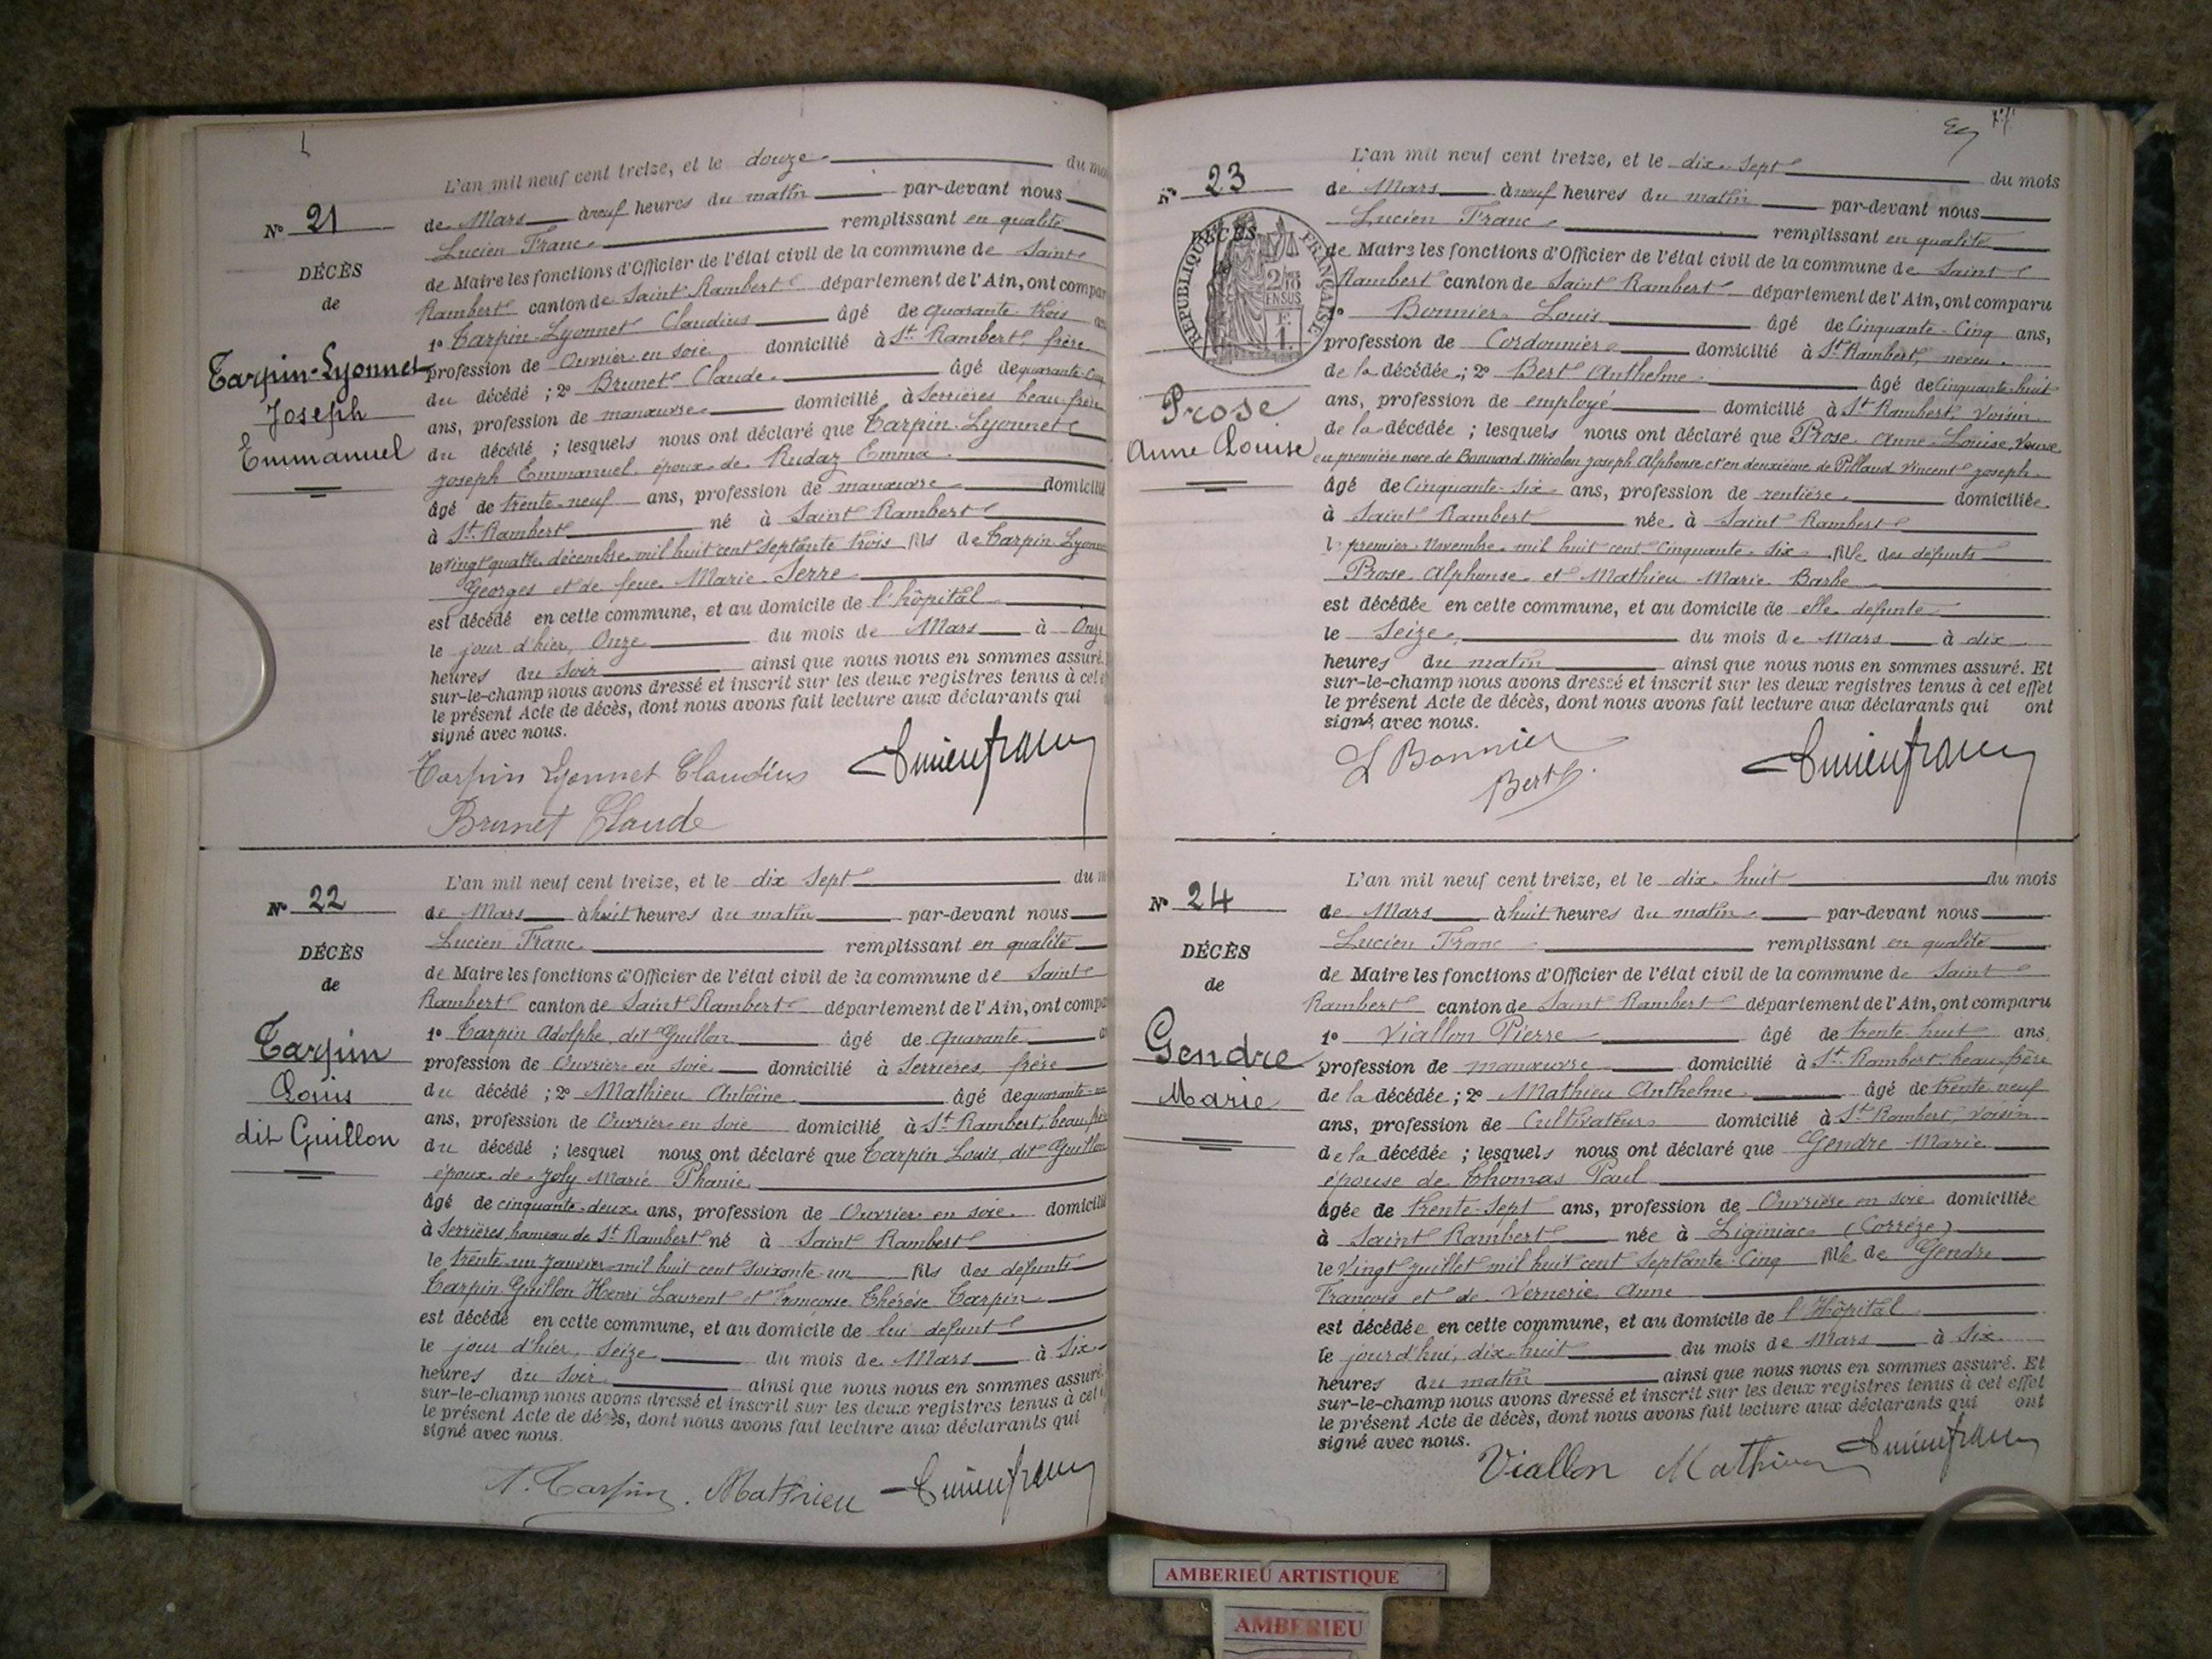 L'an mil neuf cent treize, et le douze du mo
N° 21
de Mars à neuf heures du matin par-devant nous
Lucien Franc remplissant en qualité
DÉCÈS
de Maire les fonctions d'Officier de l'état civil de la commune de Saint
de
Rambert canton de Saint Rambert département de l'Ain, ont compar
1° Tarpin-Lyonnet Claudius âgé de quarante trois
Tarpin-Lyonnet
Joseph
Emmanuel
profession de Ouvrier en soie domicilié à St Rambert, frère
du décédé ; 2° Brunet Claude âgé de quarante-cinq
ans, profession de manœuvre domicilié à Serrières beau frère
du décédé ; lesquels nous ont déclaré que Tarpin-Lyonnet
Joseph Emmanuel, époux de Rudaz Emma
âgé de trente-neuf ans, profession de manœuvre domicilié
à St Rambert né à Saint Rambert
le vingt quatre décembre mil huit cent septante trois fils de Tarpin Lyonn
Georges et de feue Marie Serre
est décédé en cette commune, et au domicile de l'hôpital
le jour d'hier, Onze du mois de Mars à Onze
heures du soir ainsi que nous nous en sommes assuré.
sur-le-champ nous avons dressé et inscrit sur les deux registres tenus à cet e
le présent Acte de décès, dont nous avons fait lecture aux déclarants qui
signé avec nous.
Tarpin Lyonnet Claudius Lucien franc
Brunet Claude
L'an mil neuf cent treize, et le dix sept du m
N° 22
de Mars à huit heures du matin par-devant nous
Lucien Franc remplissant en qualité
DÉCÈS
de Maire les fonctions d'Officier de l'état civil de la commune de Saint
de
Rambert canton de Saint Rambert département de l'Ain, ont compa
1° Tarpin Adolphe, dit Guillon âgé de quarante
Tarpin
Louis
dit Guillon
profession de Ouvrier en soie domicilié à Serrières, frère
du décédé ; 2° Mathieu Antoine âgé de quarante
ans, profession de Ouvrier en soie domicilié à St Rambert, beau frère
du décédé ; lesquel nous ont déclaré que Tarpin Louis, dit Guillon
époux de Joly Marie Phanie
âgé de cinquante-deux ans, profession de Ouvrier en soie domicilié
à Serrières, hameau de St Rambert né à Saint Rambert
le trente-un Janvier mil huit cent soixante-un fils des défunts
Tarpin Guillon Henri Laurent et Françoise Thérèse Tarpin
est décédé en cette commune, et au domicile de lui défunt
le jour d'hier, Seize du mois de Mars à Six
heures du soir ainsi que nous nous en sommes assuré.
sur-le-champ nous avons dressé et inscrit sur les deux registres tenus à cet
le présent Acte de décès, dont nous avons fait lecture aux déclarants qui
signé avec nous.
A. Tarpin. Mathieu Lucien franc
L'an mil neuf cent treize, et le dix sept du mois
N° 23
de Mars à neuf heures du matin par-devant nous
Lucien Franc remplissant en qualité
DÉCÈS
RÉPUBLIQUE FRANÇAISE
de Maire les fonctions d'Officier de l'état civil de la commune de Saint
Rambert canton de Saint Rambert département de l'Ain, ont comparu
1° Bonnier Louis âgé de Cinquante-Cinq ans,
profession de Cordonnier domicilié à St Rambert, neveu
de la décédée ; 2° Bert Anthelme âgé de Cinquante-huit
Prose
Anne Louise
ans, profession de employé domicilié à St Rambert, voisin
de la décédée ; lesquels nous ont déclaré que Prose Anne-Louise, Veuve
en première noce de Bonnard Micolon Joseph Alphonse et en deuxième de Pillaud Vincent Joseph
âgé de Cinquante-six ans, profession de rentière domiciliée
à Saint Rambert née à Saint Rambert
le premier Novembre mil huit cent cinquante-six fille des défunts
Prose Alphonse et Mathieu Marie Barbe
est décédée en cette commune, et au domicile de elle défunte
le Seize du mois de Mars à dix
heures du matin ainsi que nous nous en sommes assuré. Et
sur-le-champ nous avons dressé et inscrit sur les deux registres tenus à cet effet
le présent Acte de décès, dont nous avons fait lecture aux déclarants qui ont
signé avec nous.
L Bonnier Lucien franc
Bert
L'an mil neuf cent treize, et le dix-huit du mois
N° 24
de Mars à huit heures du matin par-devant nous
Lucien Franc remplissant en qualité
DÉCÈS
de Maire les fonctions d'Officier de l'état civil de la commune de Saint
de
Rambert canton de Saint Rambert département de l'Ain, ont comparu
1° Viallon Pierre âgé de trente-huit ans,
Gendre
Marie
profession de manœuvre domicilié à St Rambert beau frère
de la décédée ; 2° Mathieu Anthelme âgé de trente-neuf
ans, profession de Cultivateur domicilié à St Rambert, voisin
de la décédée ; lesquels nous ont déclaré que Gendre Marie
épouse de Thomas Paul
âgée de trente-sept ans, profession de Ouvrière en soie domiciliée
à Saint Rambert née à Liginiac (Corrèze)
le Vingt Juillet mil huit cent septante-cinq fille de Gendre
François et de Vernerie Anne
est décédée en cette commune, et au domicile de l'Hôpital
le jour d'hui, dix-huit du mois de Mars à Six
heures du matin ainsi que nous nous en sommes assuré. Et
sur-le-champ nous avons dressé et inscrit sur les deux registres tenus à cet effet
le présent Acte de décès, dont nous avons fait lecture aux déclarants qui ont
signé avec nous.
Viallon Mathieu Lucien franc
AMBERIEU ARTISTIQUE
AMBERIEU